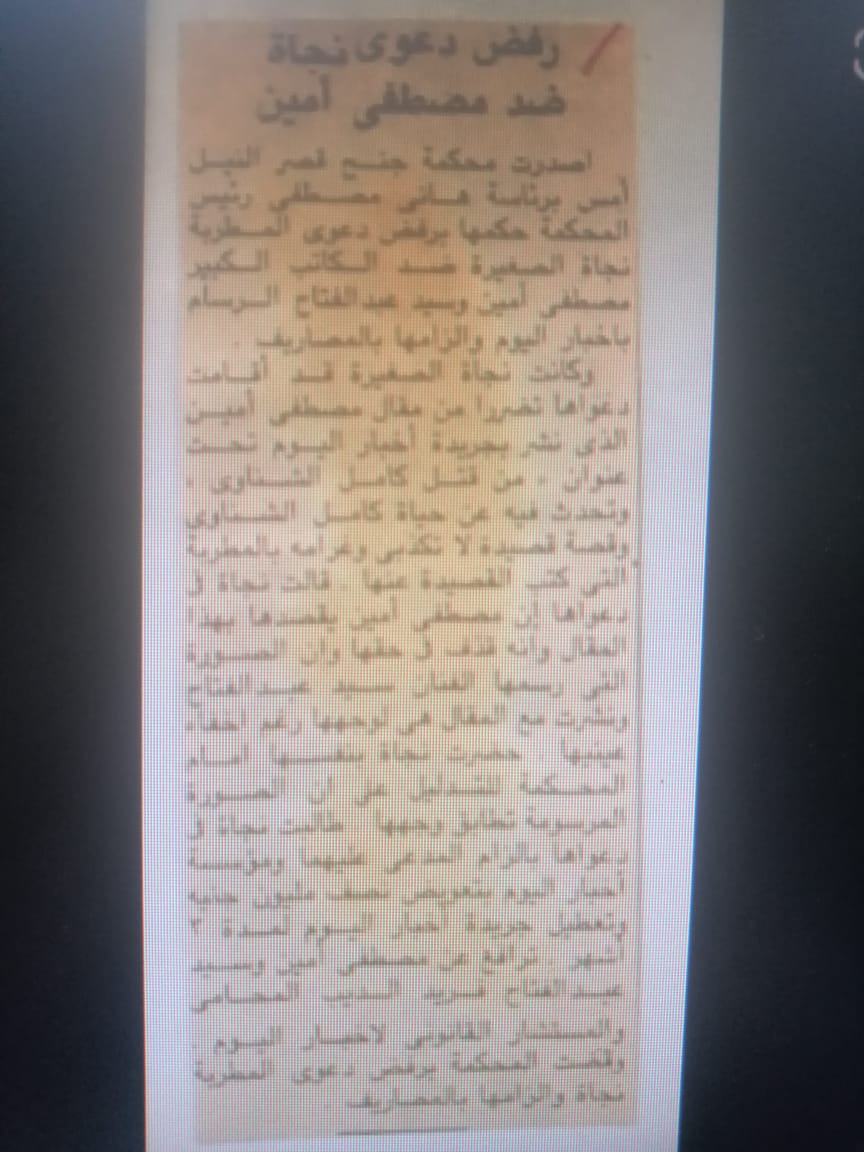 رفض دعوى نجاة
ضد مصطفى أمين
أصدرت محكمة جنح قصر النيل
أمس برئاسة هانى مصطفى رئيس
المحكمة حكمها برفض دعوى المطربة
نجاة الصغيرة ضد الكاتب الكبير
مصطفى أمين وسيد عبدالفتاح الرسام
باخبار اليوم والزامها بالمصاريف .
وكانت نجاة الصغيرة قد أقامت
دعواها تضررا من مقال مصطفى أمين
الذى نشر بجريدة أخبار اليوم تحت
عنوان « من قتل كامل الشناوى »
وتحدث فيه عن حياة كامل الشناوى
وقصة قصيدة لا تكذبى وغرامه بالمطربة
التى كتب القصيدة عنها . قالت نجاة فى
دعواها إن مصطفى أمين يقصدها بهذا
المقال وأنه قذف فى حقها وان الصورة
التى رسمها الفنان سيد عبدالفتاح
ونشرت مع المقال هى لوجهها رغم اخفاء
عينيها . حضرت نجاة بنفسها امام
المحكمة للتدليل على ان الصورة
المرسومة تطابق وجهها . طالبت نجاة فى
دعواها بالزام المدعى عليهما ومؤسسة
أخبار اليوم بتعويض نصف مليون جنيه
وتعطيل جريدة أخبار اليوم لمدة ٣
أشهر . ترافع عن مصطفى أمين وسيد
عبدالفتاح فريد الديب المحامى
والمستشار القانونى لاخبار اليوم .
وقضت المحكمة برفض دعوى المطربة
نجاة والزامها بالمصاريف .